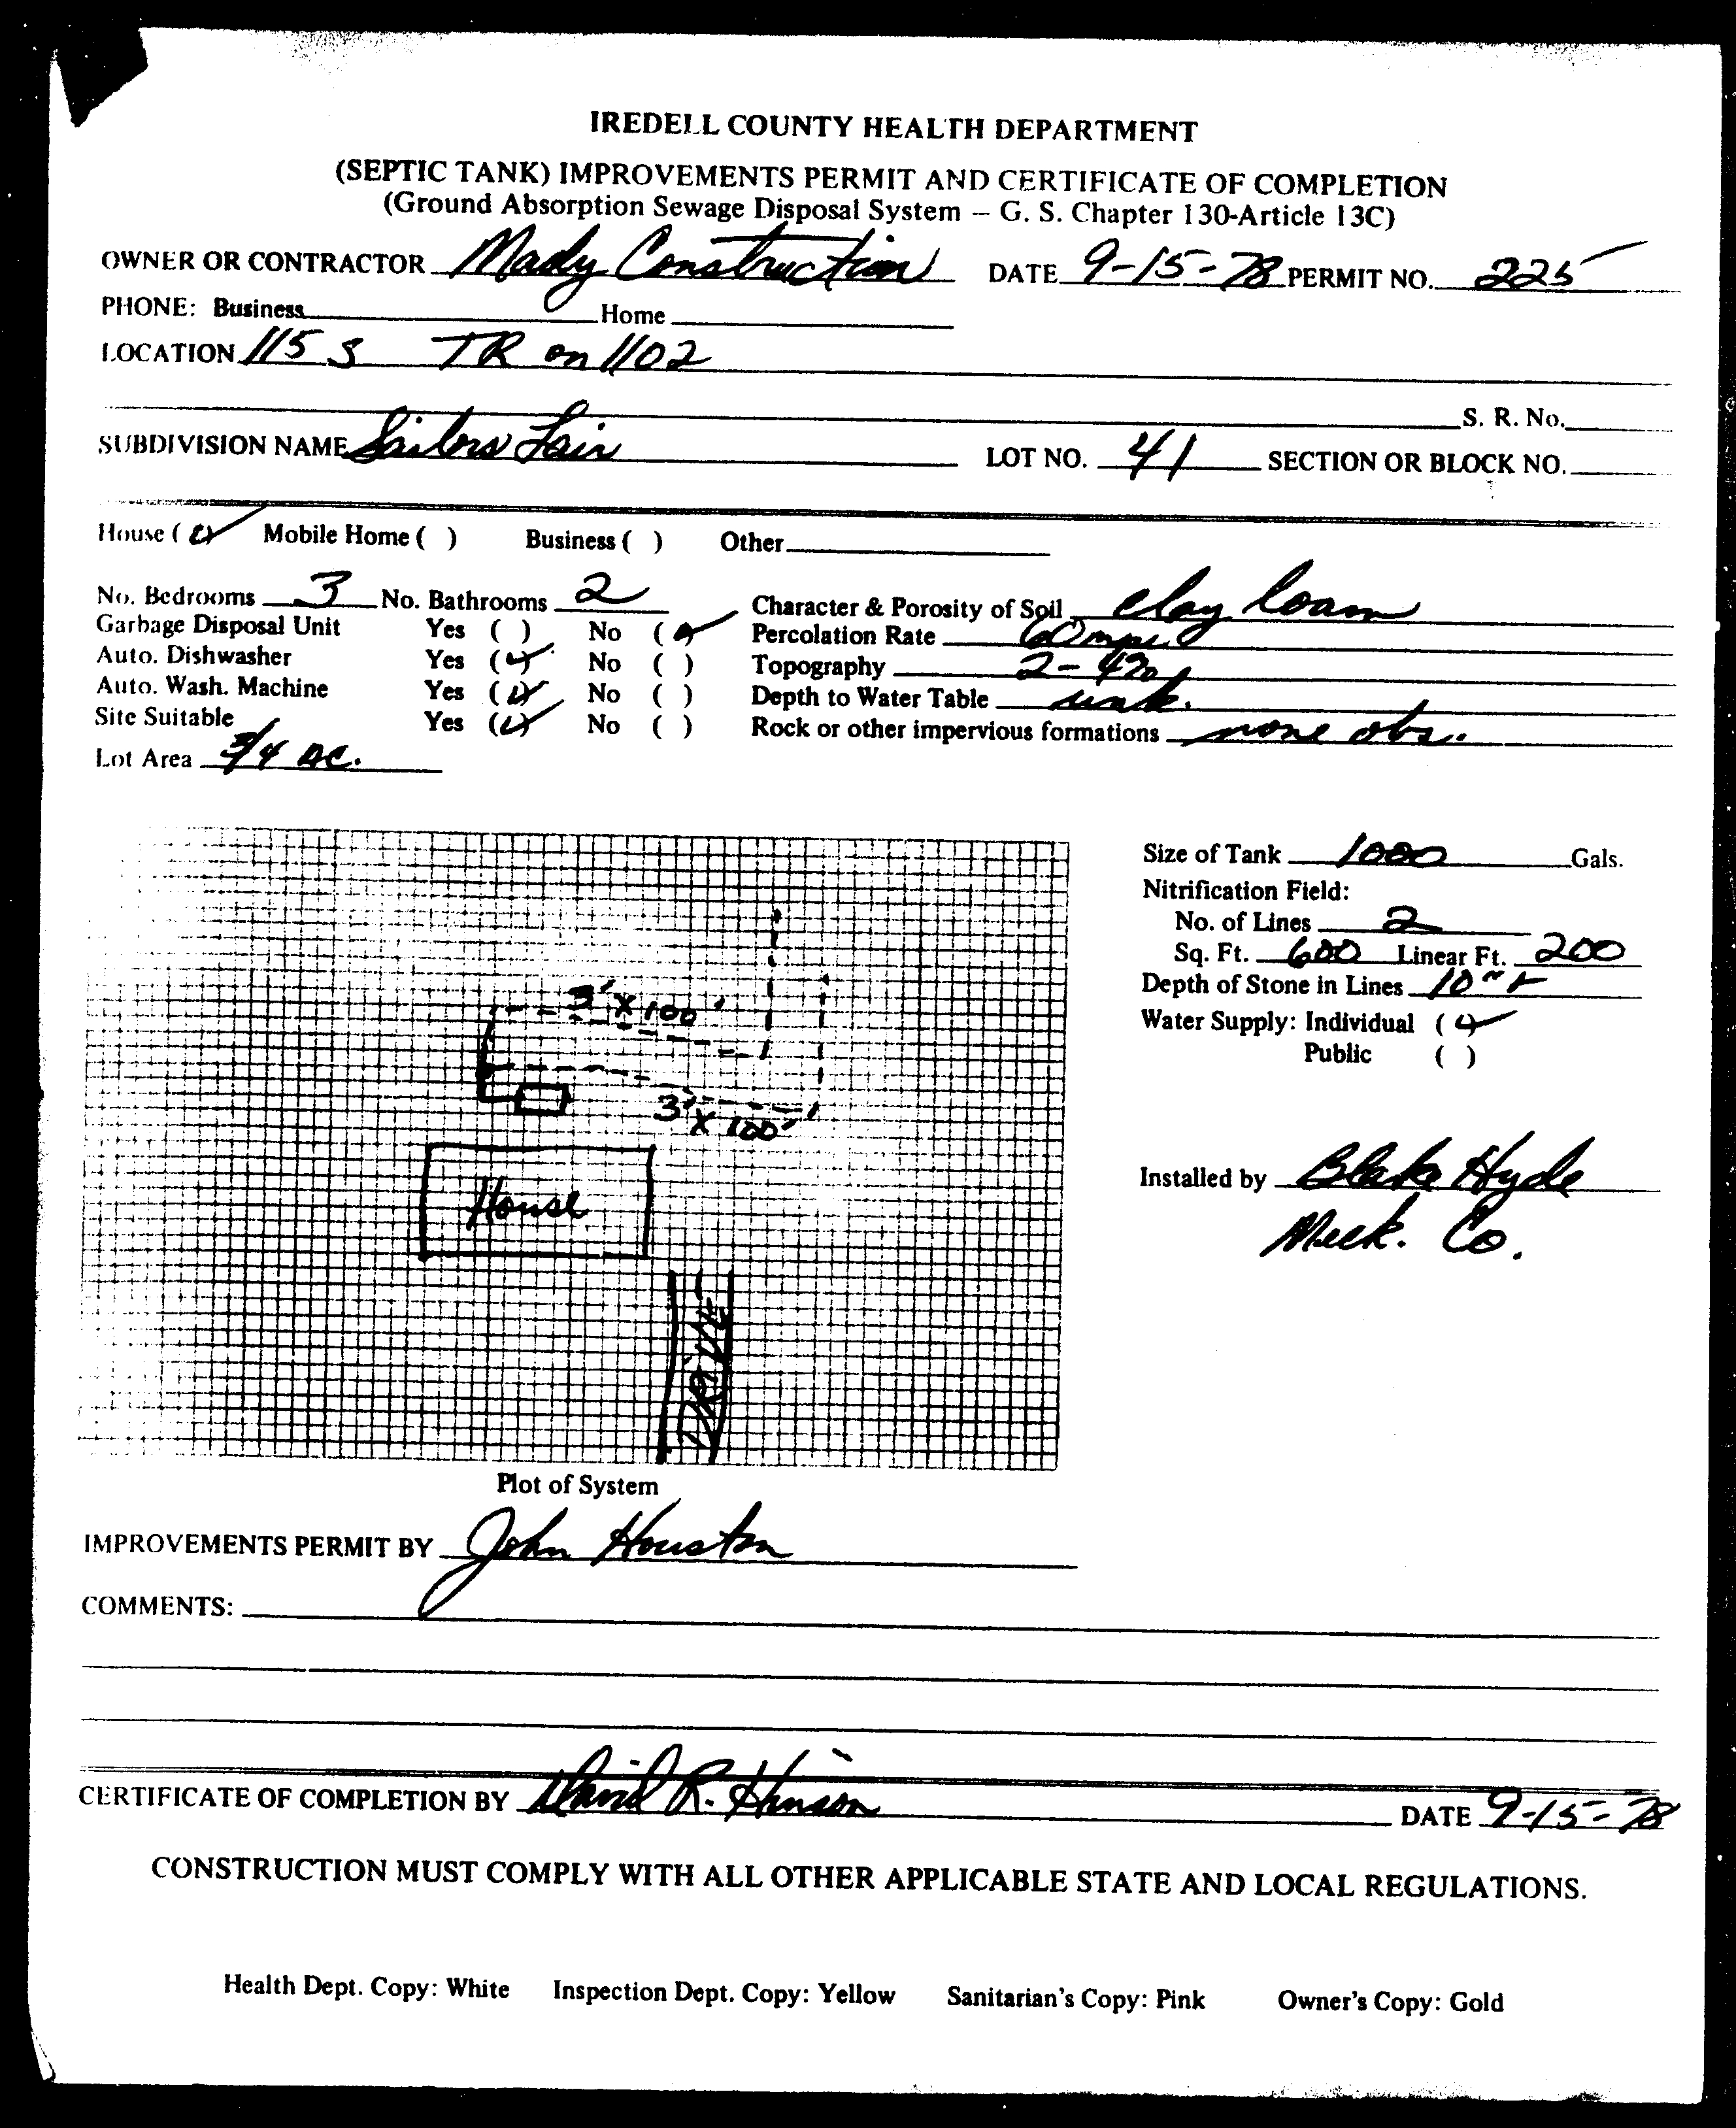 IREDELL COUNTY HEALTH DEPARTMENT
(SEPTIC TANK) IMPROVEMENTS PERMIT AND CERTIFICATE OF COMPLETION
(Ground Absorption Sewage Disposal System – G. S. Chapter 130-Article 13C)
OWNER OR CONTRACTOR Mady Construction DATE 9-15-78 PERMIT NO. 225
PHONE: Business Home
LOCATION 115 S TR on 1102
S. R. No.
SUBDIVISION NAME Sailors Lair LOT NO. 41 SECTION OR BLOCK NO.
House (✓) Mobile Home ( ) Business ( ) Other
No. Bedrooms 3 No. Bathrooms 2 Character & Porosity of Soil clay loam
Garbage Disposal Unit Yes ( ) No (✓) Percolation Rate 60 mpi
Auto. Dishwasher Yes (✓) No ( ) Topography 2-4%
Auto. Wash. Machine Yes (✓) No ( ) Depth to Water Table unk.
Site Suitable Yes (✓) No ( ) Rock or other impervious formations none obs.
Lot Area 3/4 ac.
Size of Tank 1000 Gals.
Nitrification Field:
No. of Lines 2
Sq. Ft. 600 Linear Ft. 200
Depth of Stone in Lines 10"
Water Supply: Individual (✓)
Public ( )
3' X 100'
3' X 100'
House
DRIVE
Installed by Blake Hyde
Meck. Co.
Plot of System
IMPROVEMENTS PERMIT BY John Houston
COMMENTS:
CERTIFICATE OF COMPLETION BY David R. Hinson DATE 9-15-78
CONSTRUCTION MUST COMPLY WITH ALL OTHER APPLICABLE STATE AND LOCAL REGULATIONS.
Health Dept. Copy: White Inspection Dept. Copy: Yellow Sanitarian's Copy: Pink Owner's Copy: Gold